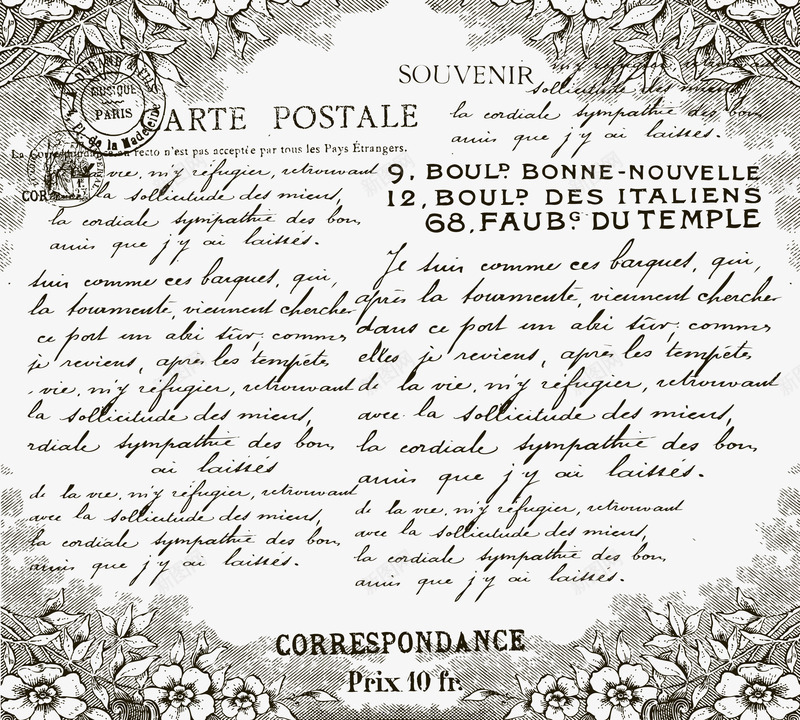 DURAND & FILS
MUSIQUE
PARIS
Pl. de la Madeleine
CARTE POSTALE
La Correspondance au recto n'est pas acceptée par tous les Pays Étrangers.
COR
vie, m'y réfugier, retrouvant
la sollicitude des miens,
la cordiale sympathie des bons
amis que j'y ai laissés.
suis comme ces barques, qui,
la tourmente, viennent chercher
ce port un abri sûr; comme
je reviens, après les tempêtes
vie, m'y réfugier, retrouvant
la sollicitude des miens,
rdiale sympathie des bons
ai laissés
de la vie, m'y réfugier, retrouvant
avec la sollicitude des miens,
la cordiale sympathie des bons
amis que j'y ai laissés.
SOUVENIR
sollicitude des miens
la cordiale sympathie des bons
amis que j'y ai laissés.
9, BOULD BONNE-NOUVELLE
12, BOULD DES ITALIENS
68, FAUBG DU TEMPLE
Je suis comme ces barques, qui,
après la tourmente, viennent chercher
dans ce port un abri sûr; comme
elles je reviens, après les tempêtes
de la vie, m'y réfugier, retrouvant
avec la sollicitude des miens,
la cordiale sympathie des bons
amis que j'y ai laissés.
de la vie, m'y réfugier, retrouvant
avec la sollicitude des miens,
la cordiale sympathie des bons
amis que j'y ai laissés.
CORRESPONDANCE
Prix 10 fr.